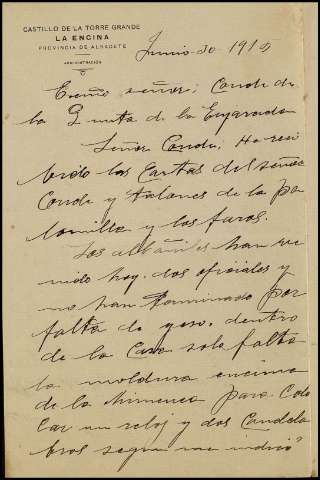 CASTILLO DE LA TORRE GRANDE
LA ENCINA
PROVINCIA DE ALBACETE
ADMINISTRACIÓN
Junio 30 1915
Excmo señor; Conde de
la Quinta de la Enjarada
Señor Conde, He reci
bido las Cartas del señor
Conde y talones de la pa
lomilla y los faros.
Los albañiles han ve
nido hoy. dos oficiales y
no han terminado por
falta de yeso. dentro
de la Casa solo falta
la moldura encima
de la himenea para Colo
Car un reloj y dos Candela
bros segun me indicó